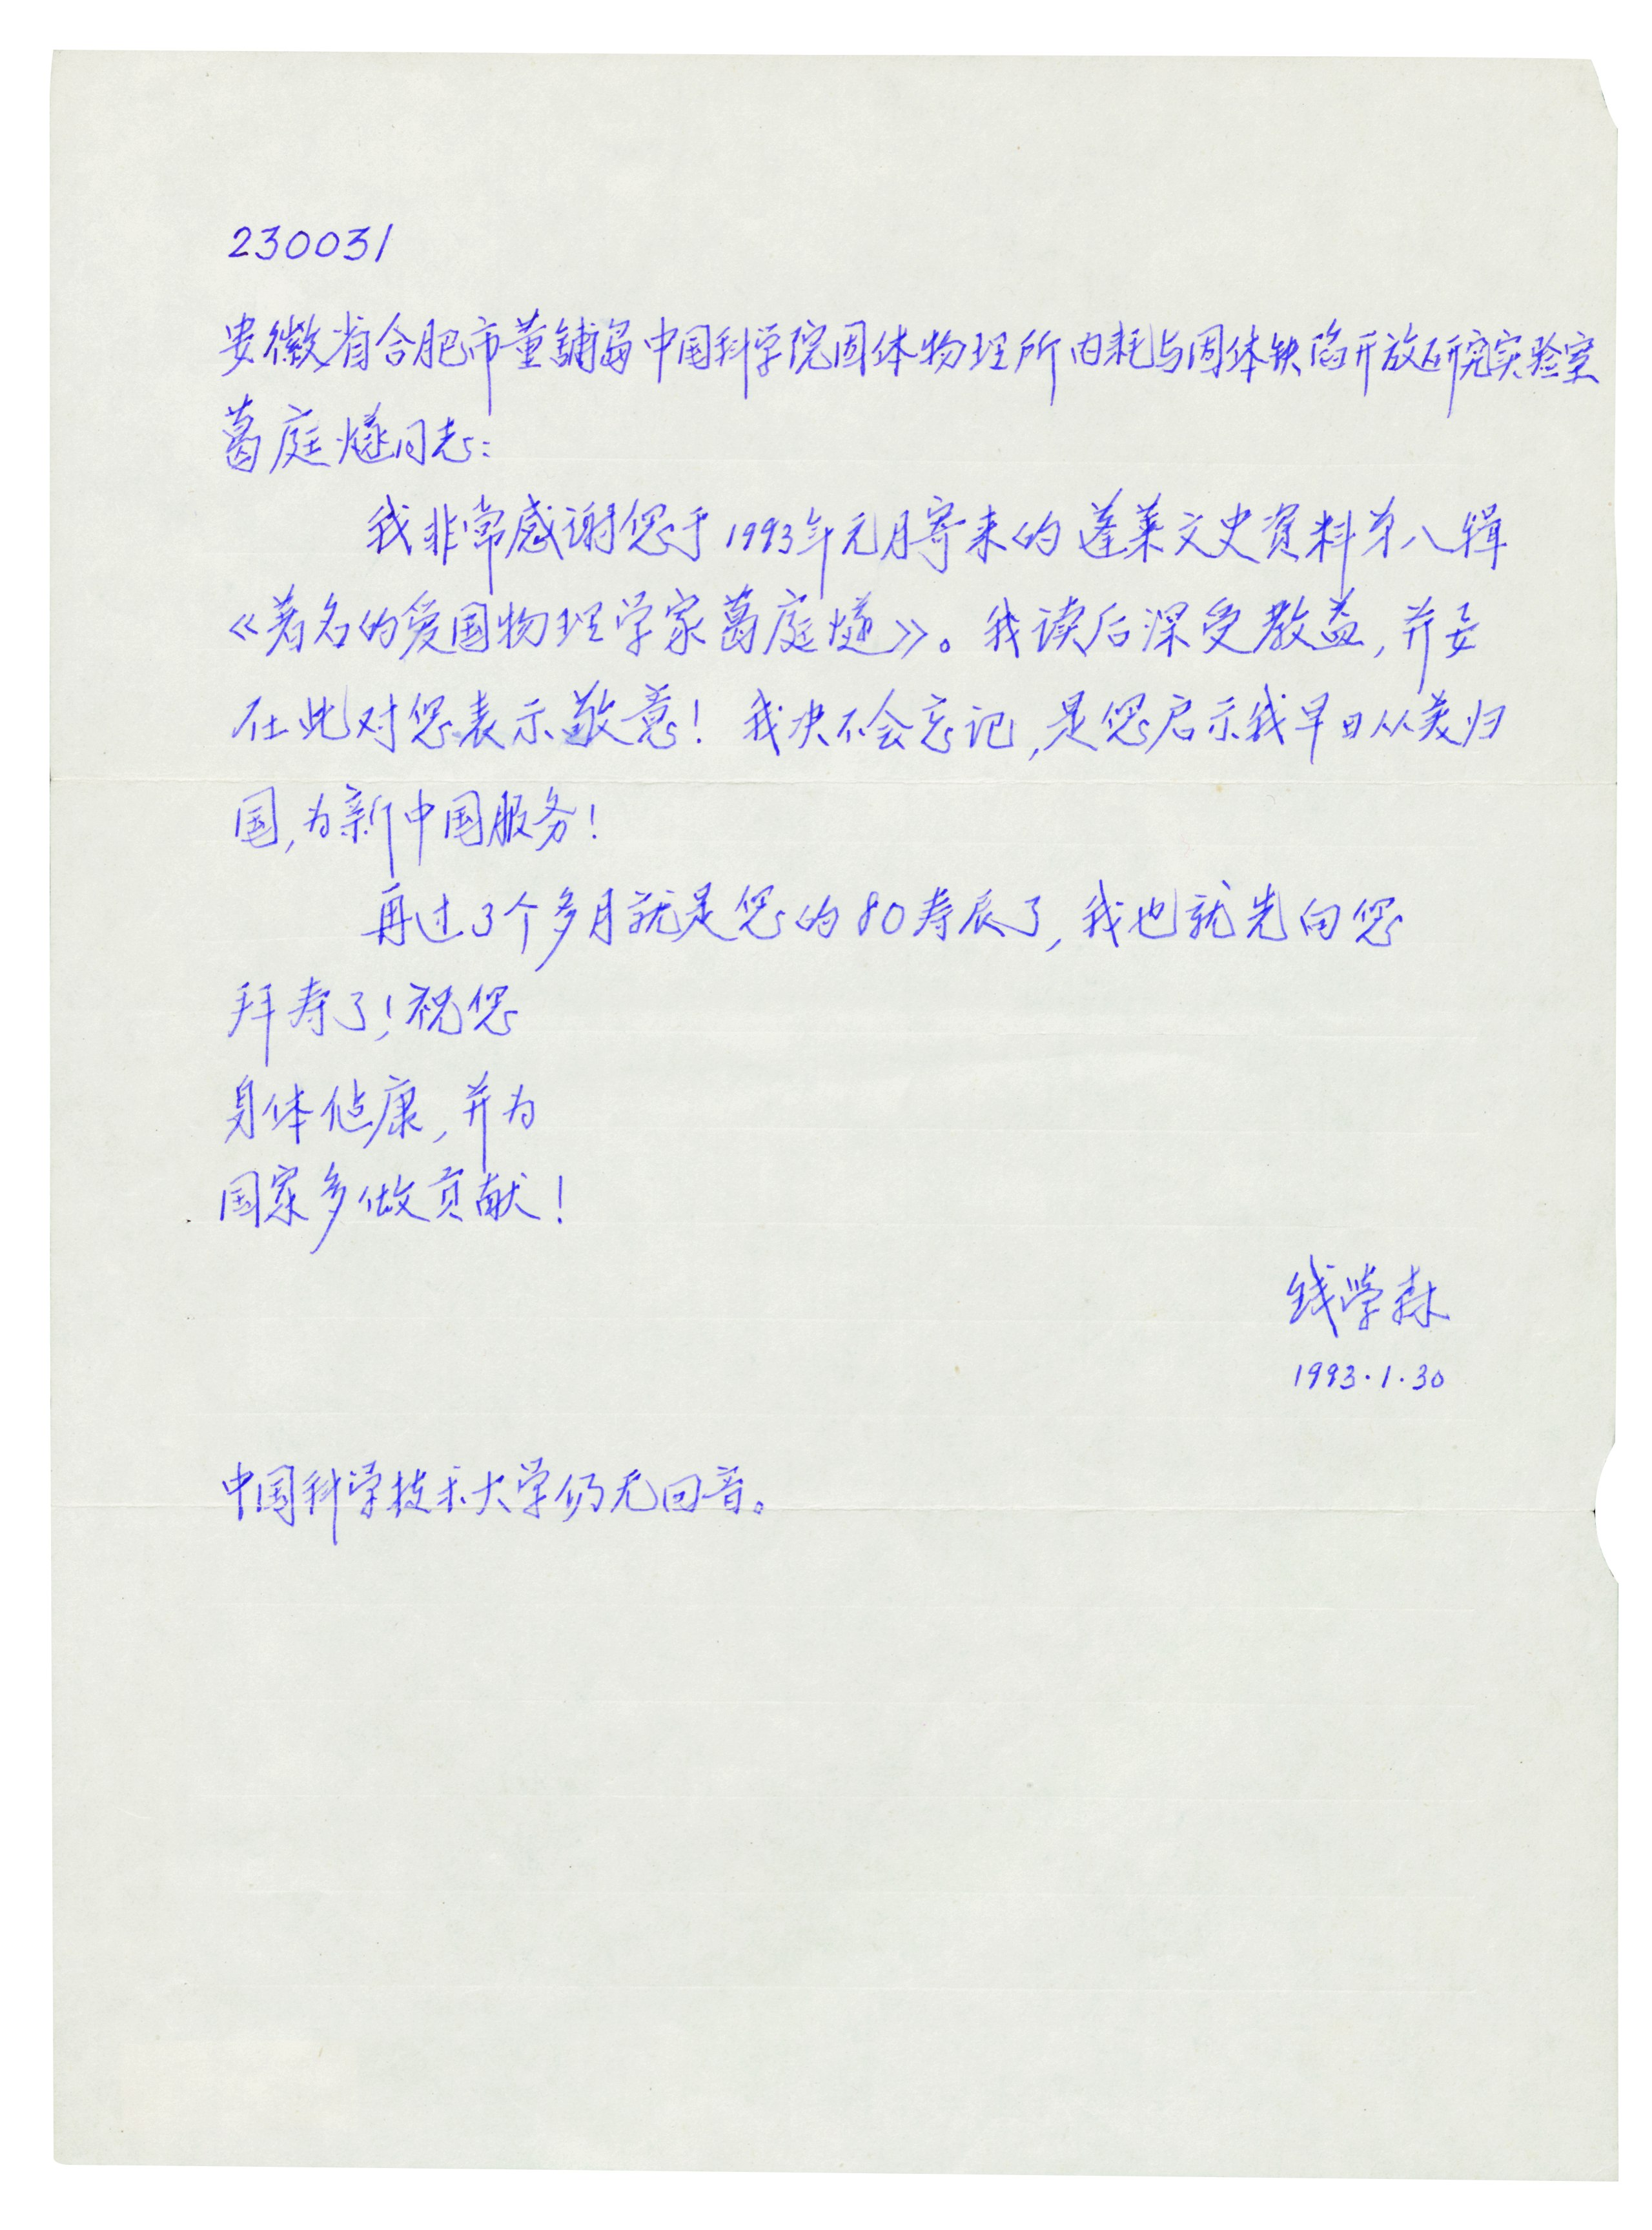 230031
安徽省合肥市董铺岛中国科学院固体物理所内耗与固体缺陷开放研究实验室
葛庭燧同志:
我非常感谢您于1993年元月寄来的蓬莱文史资料第八辑
《著名的爱国物理学家葛庭燧》。我读后深受教益,并要
在此对您表示敬意!我决不会忘记,是您启示我早日从美归
国,为新中国服务!
再过3个多月就是您的80寿辰了,我也就先向您
拜寿了!祝您
身体健康,并为
国家多做贡献!
钱学森
1993·1·30
中国科学技术大学仍无回音。